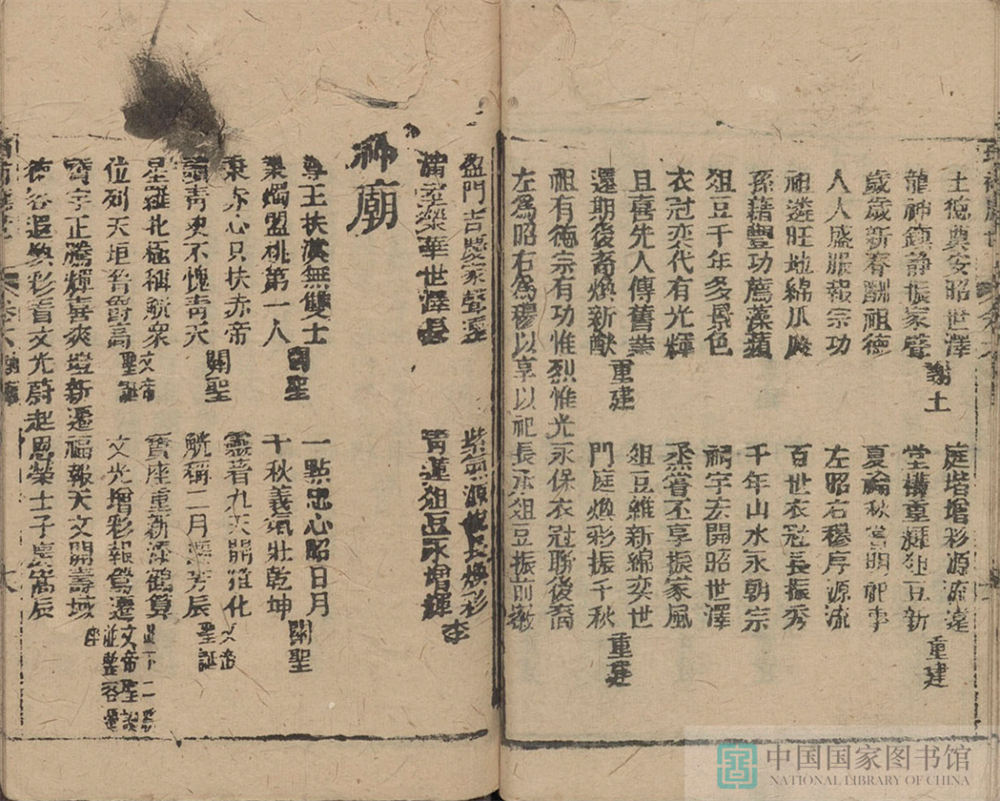 土德奠安昭世澤 謝土 庭堦增彩源流遠
龍神鎮静振家聲 堂構重輝俎豆新 重建
歲歲新春酬祖德 夏禴秋嘗明祀事
人人盛服報宗功 左昭右穆序源流
祖遴旺地綿瓜瓞 百世衣冠長振秀
孫藉豐功薦藻蘋 千年山水永朝宗
俎豆千年多景色 祠宇宏開昭世澤
衣冠奕代有光輝 烝嘗丕享振家風
且喜先人傳舊業 俎豆維新綿奕世
還期後裔煥新猷 重建 門庭煥彩振千秋 重建
祖有德宗有功惟烈惟光永保衣冠聯後裔
左為昭右為穆以享以祀長承俎豆振前徽
盈門吉慶家聲遠 紫氣源長煥彩
滿堂榮華世澤長 青蓮俎豆永增輝 李
神廟
尊王扶漢無雙士 關聖 一點忠心昭日月
秉燭盟桃第一人 千秋義氣壯乾坤 關聖
秉赤心只扶赤帝 靈著九天開雅化
讀青史不愧青天 關聖 觥稱二月慶芳辰 文帝聖誕
星羅北極稱觥眾 寶座重新添鶴算
位列天垣晉爵高 文帝聖誕 文光增彩報鶯遷
寶宇正騰輝喜爽塏新遷福報天文開壽域
德容還煥彩音文光蔚起恩榮士子慶嵩辰
中国国家图书馆
NATIONAL LIBRARY OF CHINA